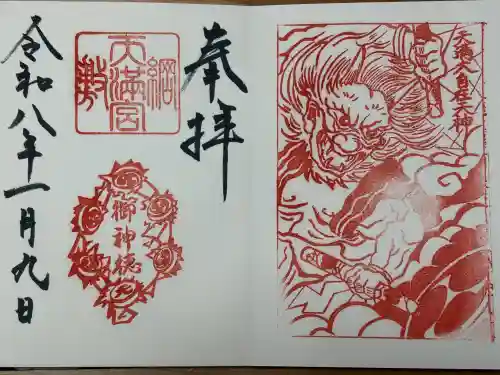 天満大自在天神
奉拝
綱敷
天満宮
御神徳
令和八年一月九日